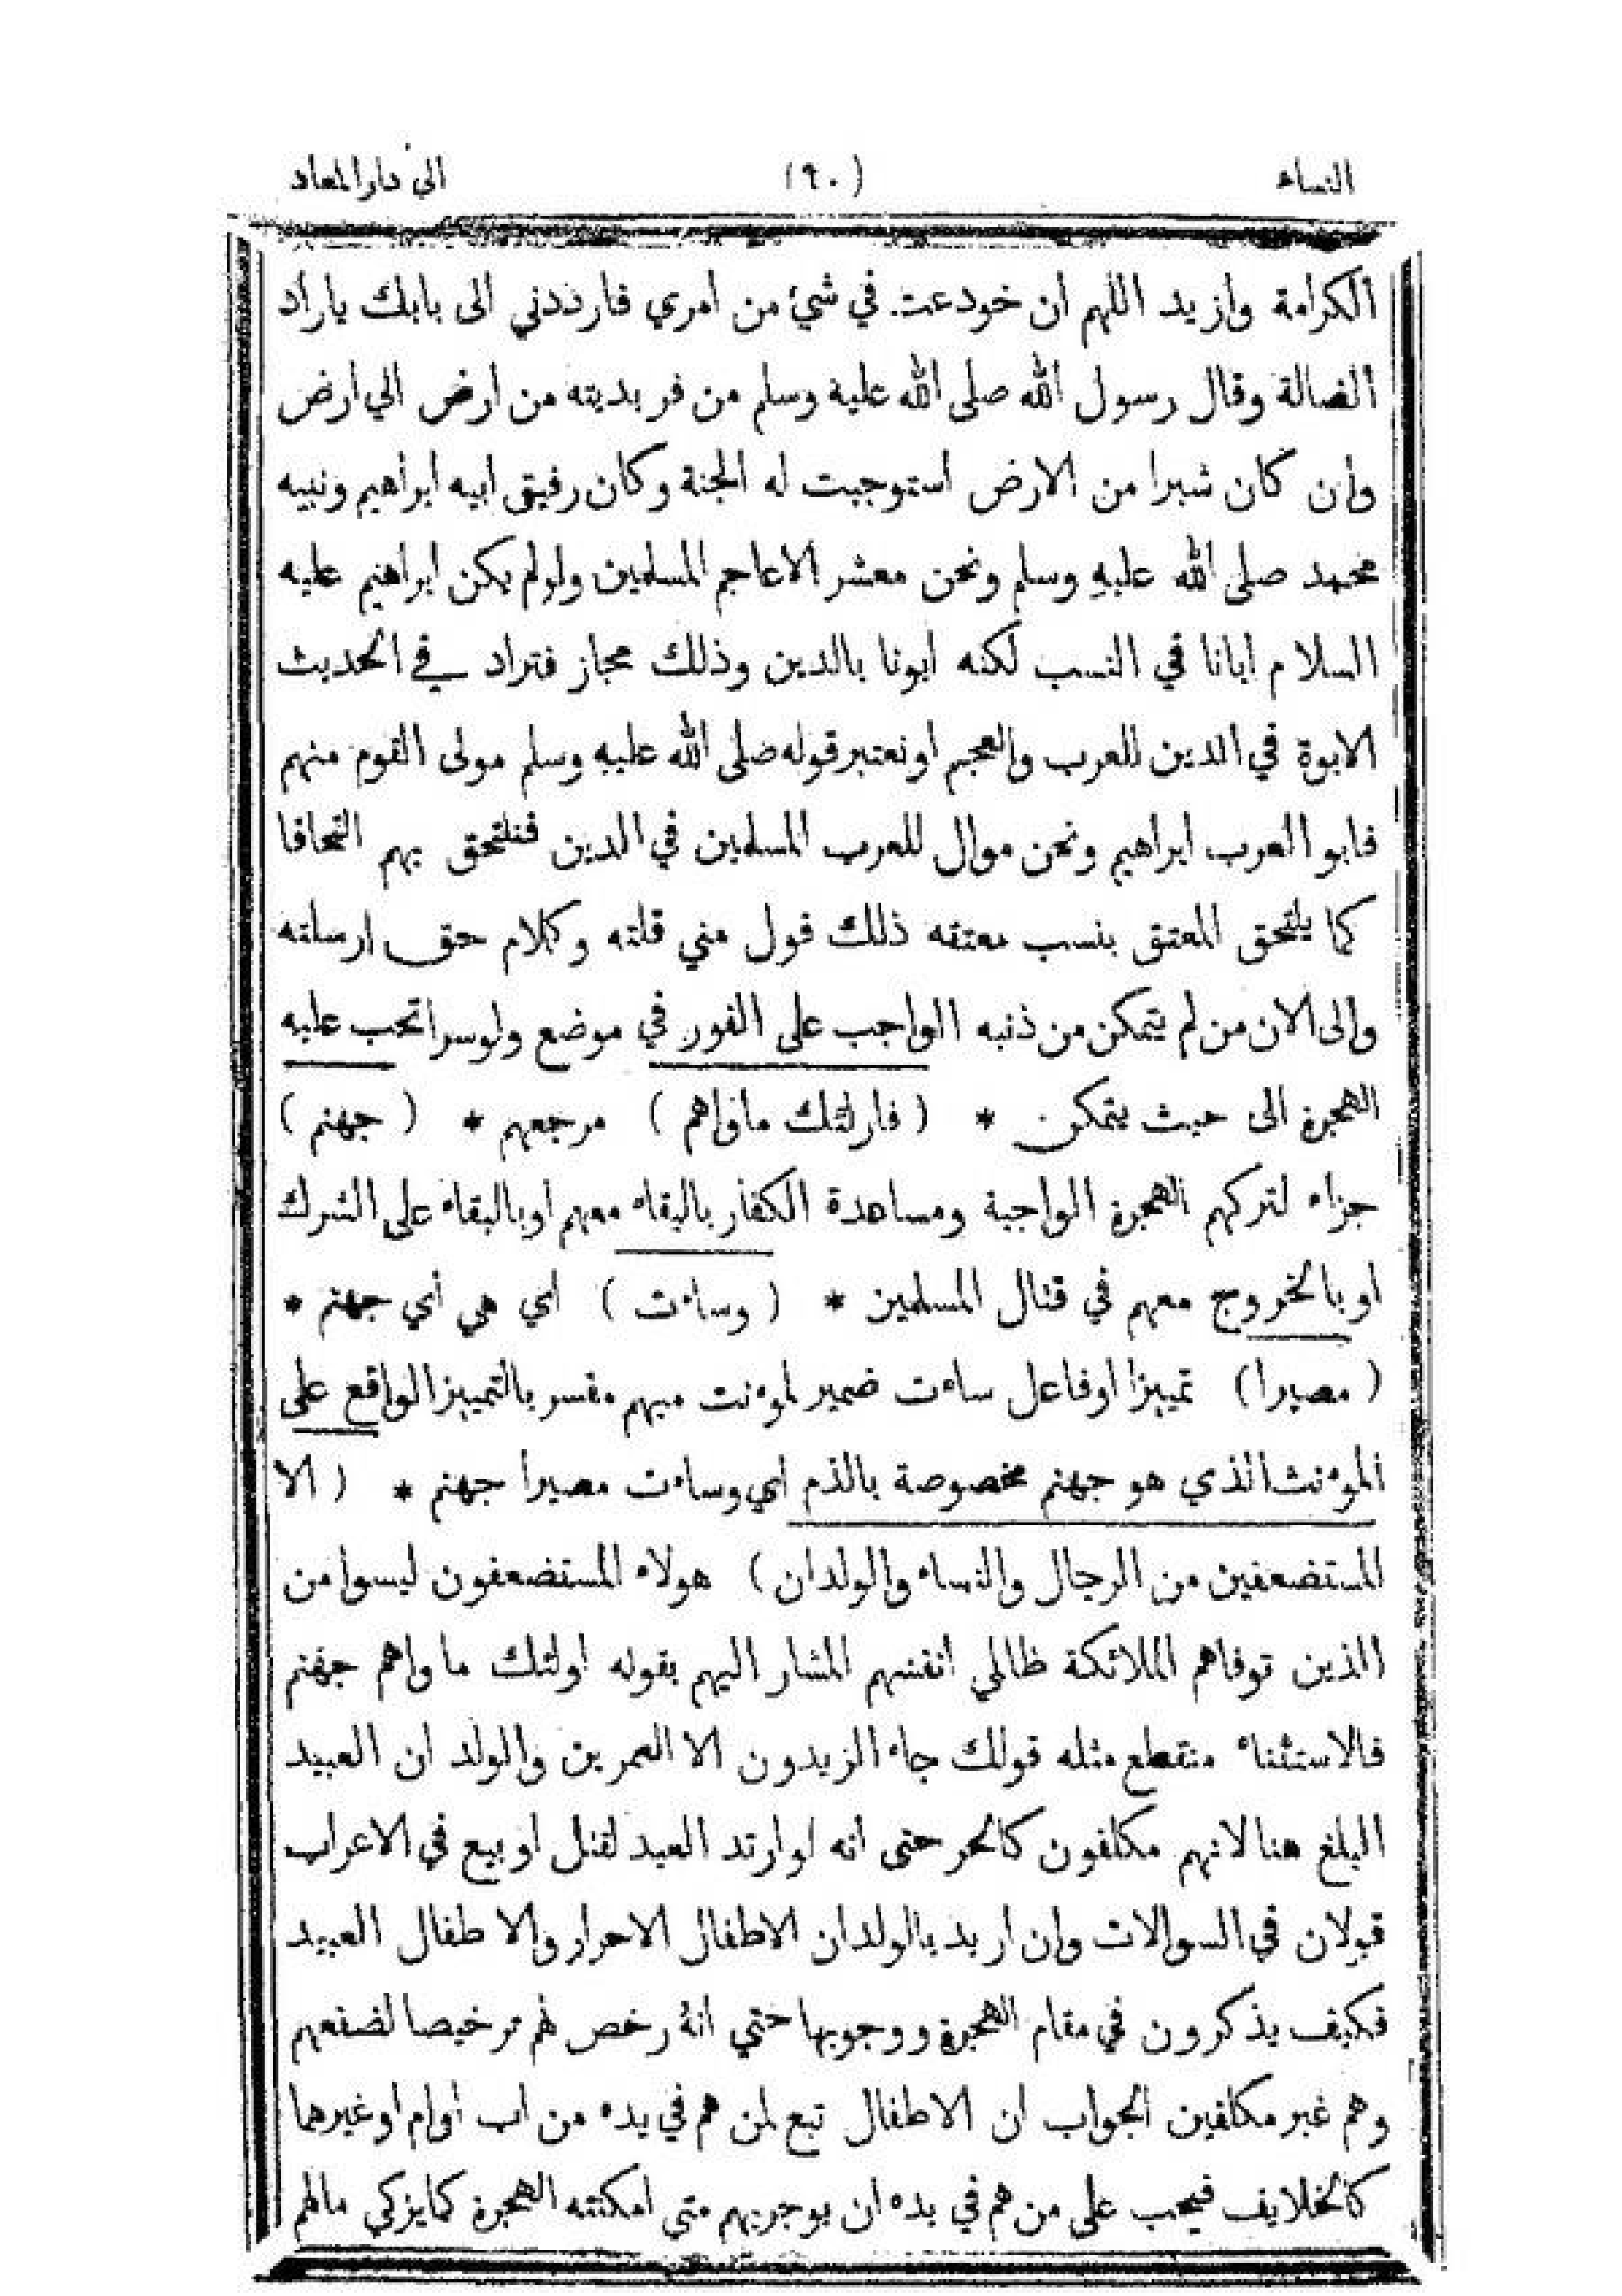 النساء (٩٠) الى دار المعاد
الكرامة وازيد اللهم ان خودعت في شيء من امري فارددني الى بابك ياراد
الضالة وقال رسول الله صلى الله عليه وسلم من فر بدينه من ارض الي ارض
وان كان شبرا من الارض استوجبت له الجنة وكان رفيق ابيه ابراهيم ونبيه
محمد صلى الله عليه وسلم ونحن معشر الاعاجم المسلمين ولولم يكن ابراهيم عليه
السلام ابانا في النسب لكنه ابونا بالدين وذلك مجاز فتراد في الحديث
الابوة في الدين للعرب والعجم او نعتبر قوله صلى الله عليه وسلم مولى القوم منهم
فابو العرب ابراهيم ونحن موال للعرب المسلمين في الدين فنلتحق بهم التحاقا
كما يلتحق المعتق بنسب معتقه ذلك قول مني قلته وكلام حق ارسلته
والى الان من لم يتمكن من ذنبه الواجب على الفور في موضع ولوسرا تجب عليه
الهجرة الى حيث يتمكن * ( فاولئك ماواهم ) مرجعهم * ( جهنم )
جزاء لتركهم الهجرة الواجبة ومساعدة الكفار بالبقاء معهم اوبالبقاء على الشرك
اوبالخروج معهم في قتال المسلمين * ( وساءت ) اي هي أي جهنم *
( مصيرا ) تمييزا اوفاعل ساءت ضمير لموءنت مبهم مفسر بالتمييز الواقع على
الموءنث الذي هو جهنم مخصوصة بالذم اي وساءت مصيرا جهنم * ( الا
المستضعفين من الرجال والنساء والولدان ) هولاء المستضعفون ليسوا من
الذين توفاهم الملائكة ظالمي انفسهم المشار اليهم بقوله اولئك ماواهم جهنم
فالاستثناء منقطع مثله قولك جاء الزيدون الا العمرين والولد ان العبيد
البلغ هنا لانهم مكلفون كالحر حتى انه لو ارتد العبد لقتل او بيع في الاعراب
قولان في السوالات وان اريد بالولدان الاطفال الاحرار والاطفال العبيد
فكيف يذكرون في مقام الهجرة ووجوبها حتي انه رخص لهم ترخيصا لضعفهم
وهم غير مكلفين الجواب ان الاطفال تبع لمن هم في يده من اب أوام اوغيرهما
كالخلايف فيجب على من هم في يده ان يوجربهم متى امكنته الهجرة كمايزكي مالهم